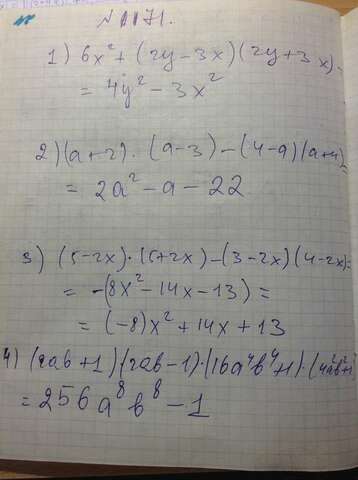 №1171.
1) 6x² + (2y-3x)(2y+3x) =
= 4y² - 3x²
2) (a+2)·(a-3) - (4-a)(a+4) =
= 2a² - a - 22
3) (5-2x)·(5+2x) - (3-2x)(4-2x) =
= -(8x² - 14x - 13) =
= (-8)x² + 14x + 13
4) (2ab+1)(2ab-1)·(16a⁴b⁴+1)·(4a²b²+1)
= 256a⁸b⁸ - 1